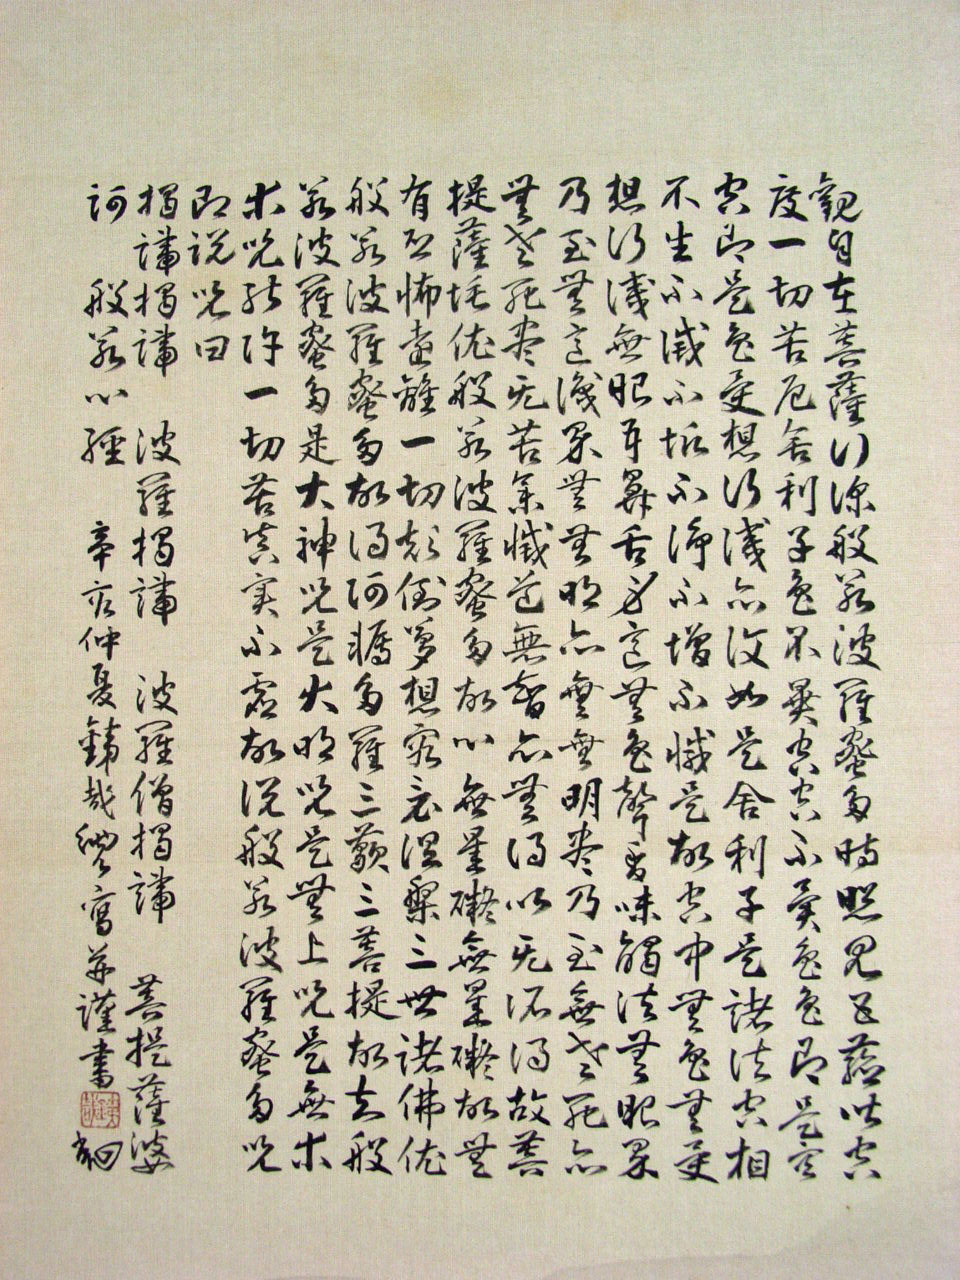 觀自在菩薩行深般若波羅蜜多時照見五蘊皆空
度一切苦厄舍利子色不異空空不異色色即是空
空即是色受想行識亦復如是舍利子是諸法空相
不生不滅不垢不淨不增不減是故空中無色無受
想行識無眼耳鼻舌身意無色聲香味觸法無眼界
乃至無意識界無無明亦無無明盡乃至無老死亦
無老死盡无苦集滅道無智亦無得以无所得故菩
提薩埵依般若波羅蜜多故心無罣礙無罣礙故無
有恐怖遠離一切顛倒夢想究竟涅槃三世諸佛依
般若波羅蜜多故得阿耨多羅三藐三菩提故知般
若波羅蜜多是大神咒是大明咒是無上咒是無等
等咒能除一切苦真實不虛故說般若波羅蜜多咒
即說咒曰
揭諦揭諦 波羅揭諦 波羅僧揭諦 菩提薩婆
訶 般若心經 辛亥仲夏 哉 謹書